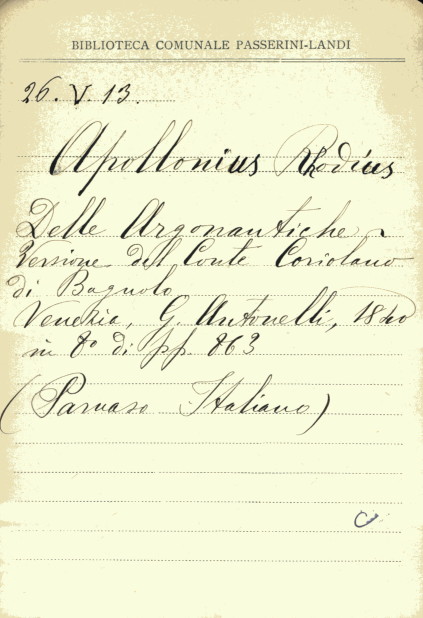 BIBLIOTECA COMUNALE PASSERINI-LANDI
26. V. 13.
Apollonius Rhodius
Delle Argonautiche -
Versione del Conte Coriolano
di Bagnolo
Venezia, G. Antonelli, 1840
in 8° di pp. 863
(Parnaso Italiano)